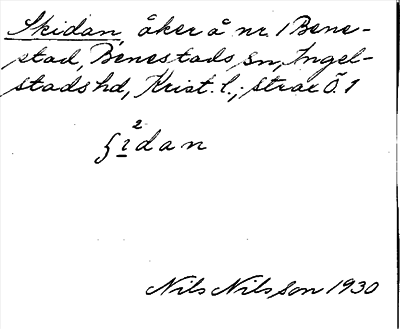 Skidan, åker å nr 1 Bene-
stad, Benestads sn, Ingel-
stads hd, Krist. l.; strax Ö. 1
2
ʃidan
Nils Nilsson 1930